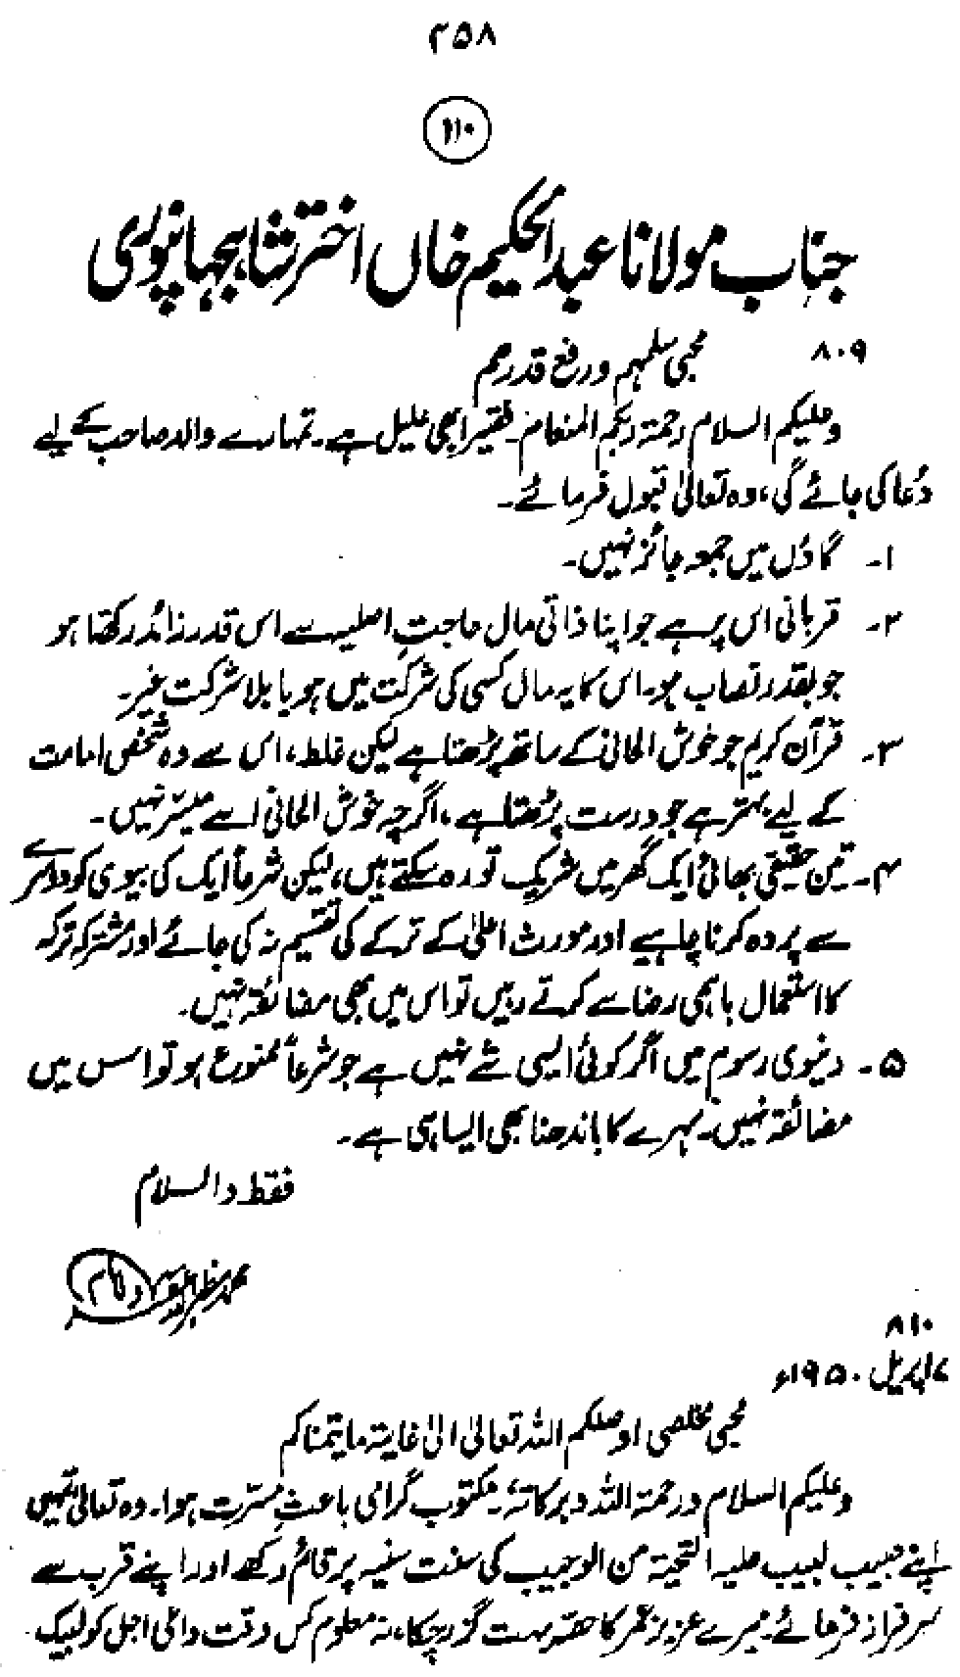 ۳۵۸
۱۱۰
جناب مولانا عبدالحکیم خاں اختر شاہجہانپوری
۸۰۹
محبی سلمہم ورفع قدرہم
وعلیکم السلام رحمۃ ربکم المنعام۔ فقیر ابھی علیل ہے۔ تمہارے والد صاحب کے لیے
دُعا کی جائے گی، وہ تعالیٰ قبول فرمائے۔
۱۔ گاؤں میں جمعہ جائز نہیں۔
۲۔ قربانی اس پر ہے جو اپنا ذاتی مال حاجتِ اصلیہ سے اس قدر زائد رکھتا ہو
جو بقدر نصاب ہو۔ اس کا یہ مال کسی کی شرکت میں ہو یا بلا شرکت غیر۔
۳۔ قرآن کریم جو خوش الحانی کے ساتھ پڑھتا ہے لیکن غلط، اس سے وہ شخص امامت
کے لیے بہتر ہے جو درست پڑھتا ہے، اگرچہ خوش الحانی اسے میسّر نہیں۔
۴۔ تین حقیقی بھائی ایک گھر میں شریک تو رہ سکتے ہیں، لیکن شرعاً ایک کی بیوی کو دوسرے
سے پردہ کرنا چاہیے اور مورث اعلیٰ کے ترکے کی تقسیم نہ کی جائے اور مشترکہ ترکہ
کا استعمال باہمی رضا سے کرتے رہیں تو اس میں بھی مضائقہ نہیں۔
۵۔ دنیوی رسوم میں اگر کوئی ایسی شے نہیں ہے جو شرعاً ممنوع ہو تو اس میں
مضائقہ نہیں۔ سہرے کا باندھنا بھی ایسا ہی ہے۔
فقط والسلام
۸۱۰
۷ اپریل ۱۹۵۰ء
محبی مخلصی اوصلکم اللہ تعالیٰ الیٰ غایۃ مایتمناکم
وعلیکم السلام ورحمۃ اللہ وبرکاتہٗ۔ مکتوب گرامی باعثِ مسرّت ہوا۔ وہ تعالیٰ تمہیں
اپنے حبیب لبیب علیہ التحیۃ من الوجیب کی سنت سنیہ پر قائم رکھے اور اپنے قرب سے
سرفراز فرمائے۔ میرے عزیز عمر کا حصّہ بہت گزر چکا، نہ معلوم کس وقت داعی اجل کو لبیک